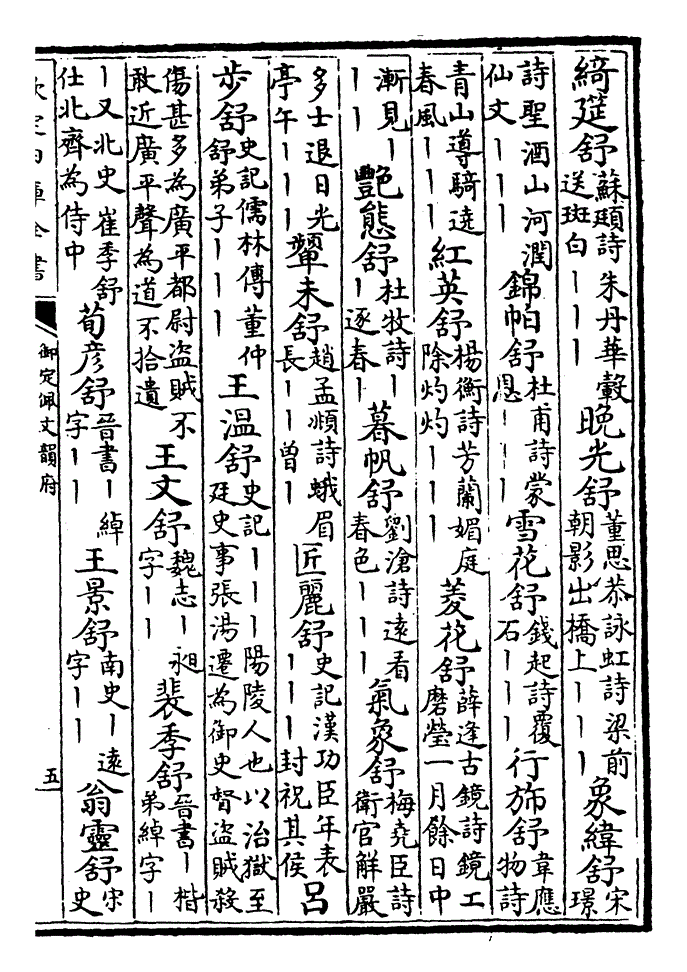 綺筵舒蘇頲詩朱丹華轂送斑白｜｜｜晚光舒董思恭詠虹詩梁前朝影出橋上｜｜｜象緯舒宋璟
詩聖酒山河潤仙文｜｜｜錦帕舒杜甫詩蒙恩｜｜｜雪花舒錢起詩覆石｜｜｜行斾舒韋應物詩
青山導騎遶春風｜｜｜紅英舒楊衡詩芳蘭媚庭除灼灼｜｜｜菱花舒薛逢古鏡詩鏡工磨瑩一月餘日中
漸見｜｜｜豔態舒杜牧詩｜｜逐春｜暮帆舒劉滄詩遠看春色｜｜｜氣象舒梅堯臣詩衛官解嚴
多士退日光亭午｜｜｜顰未舒趙孟頫詩蛾眉長｜｜曾｜匠麗舒史記漢功臣年表｜｜｜封祝其侯呂
步舒史記儒林傳董仲舒弟子｜｜｜王溫舒史記｜｜｜陽陵人也以治獄至廷史事張湯遷為御史督盜賊殺
傷甚多為廣平都尉盜賊不敢近廣平聲為道不拾遺王文舒魏志｜昶字｜｜裴季舒晉書｜楷弟綽字｜
｜又北史崔季舒仕北齊為侍中荀彦舒晉書｜綽字｜｜王景舒南史｜遠字｜｜翁靈舒宋史
欽定四庫全書
御定佩文韻府
五